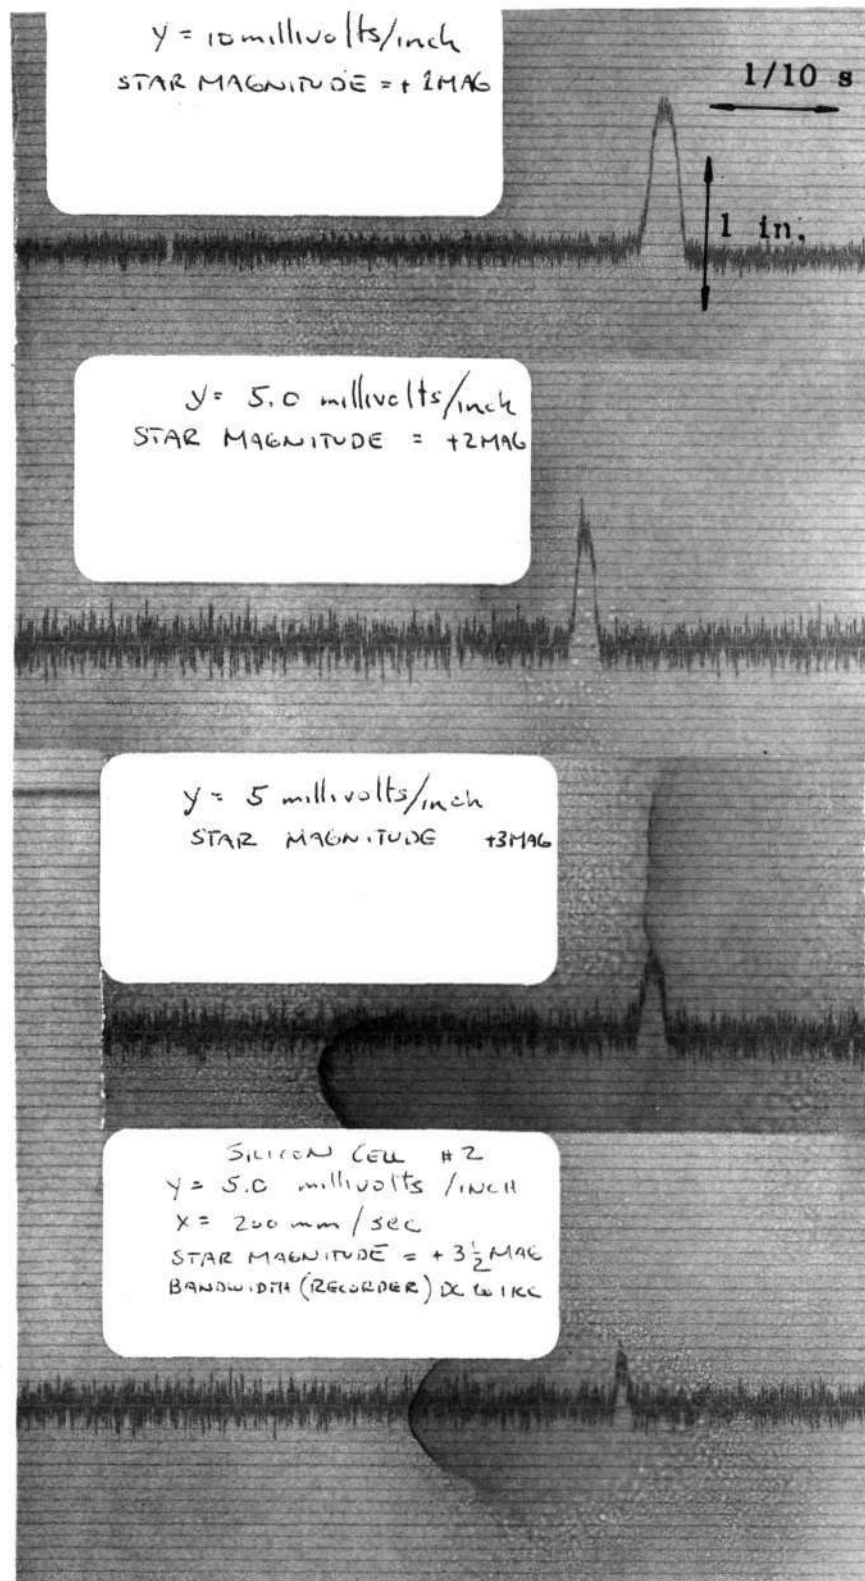 y = 10 millivolts/inch
STAR MAGNITUDE = + 1MAG
1/10 s
1 in.
y = 5.0 millivolts/inch
STAR MAGNITUDE = +2MAG
y = 5 millivolts/inch
STAR MAGNITUDE +3MAG
SILICON CELL #2
y = 5.0 millivolts /INCH
X = 200 mm/sec
STAR MAGNITUDE = + 3 1/2 MAG
BANDWIDTH (RECORDER) DC to 1KC